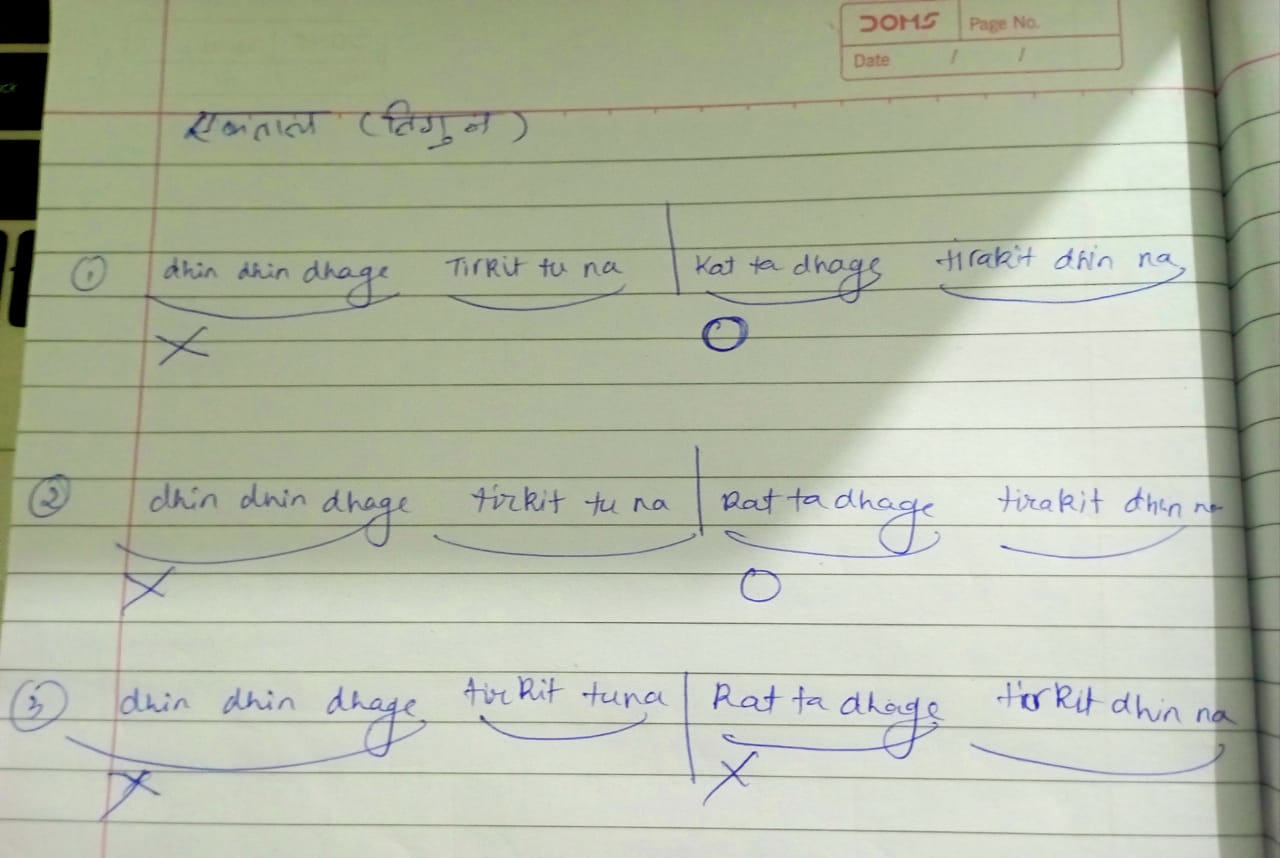 DOMS Page No.
Date / /
एकताल (तिगुन)
① dhin dhin dhage Tirkit tu na | Kat ta dhage tirakit dhin na
X O
② dhin dhin dhage tirkit tu na | Kat ta dhage tirakit dhin na
X O
③ dhin dhin dhage tirkit tuna | Kat ta dhage tirkit dhin na
X X